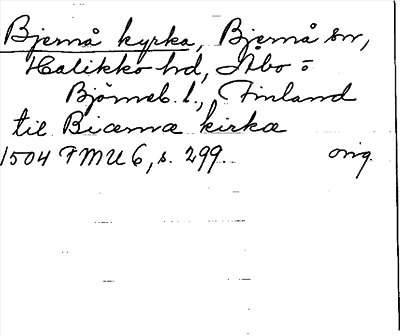 Bjernå kyrka, Bjernå sn,
Halikko hd, Åbo o
Björneb. l., Finland
til Biærna kirka
1504 FMU 6, s. 299. orig.